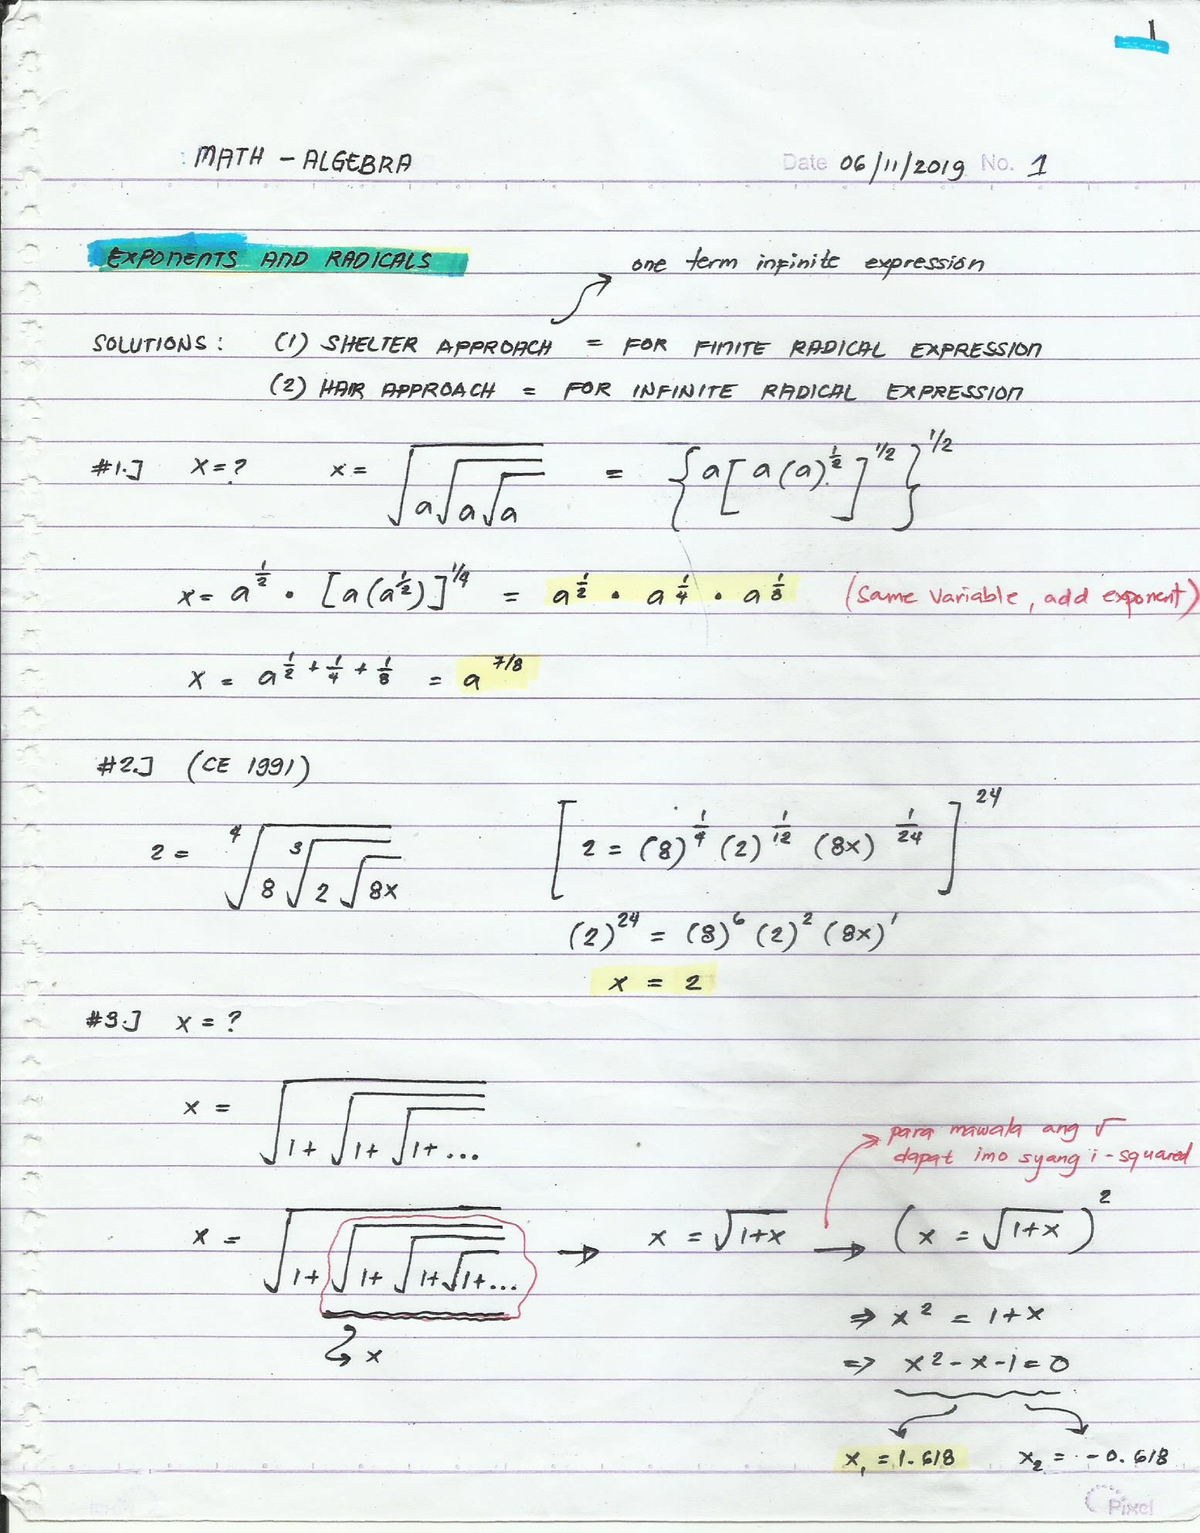 1
MATH - ALGEBRA Date 06/11/2019 No. 1
EXPONENTS AND RADICALS
one term infinite expression
SOLUTIONS: (1) SHELTER APPROACH = FOR FINITE RADICAL EXPRESSION
(2) HAIR APPROACH = FOR INFINITE RADICAL EXPRESSION
#1.] X = ? x = √(a√(a√a)) = {a[a(a)^1/2]^1/2}^1/2
x = a^1/2 · [a(a^1/2)]^1/4 = a^1/2 · a^1/4 · a^1/8 (same variable, add exponent)
x = a^(1/2 + 1/4 + 1/8) = a^7/8
#2.] (CE 1991)
2 = ⁴√(8 ³√(2√(8x))) [2 = (8)^1/4 (2)^1/12 (8x)^1/24]^24
(2)^24 = (8)^6 (2)^2 (8x)^1
x = 2
#3.] x = ?
x = √(1+√(1+√(1+...
para mawala ang √
dapat imo syang i-squared
x = √(1+√(1+√(1+√(1+... → x = √(1+x) → (x = √(1+x))^2
x
⇒ x² = 1+x
⇒ x² - x - 1 = 0
x₁ = 1.618 x₂ = -0.618
Pixel